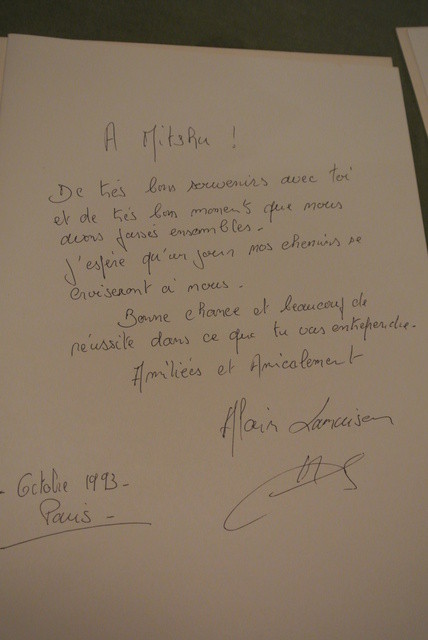 A Mitshu !
De très bon souvenirs avec toi
et de très bon moments que nous
avons passés ensembles.
J'espère qu'un jour nos chemins se
croiseront à nous.
Bonne chance et beaucoup de
réussite dans ce que tu vas entreprendre.
Amitiées et Amicalement
Alain
- Octobre 1993 -
Paris -